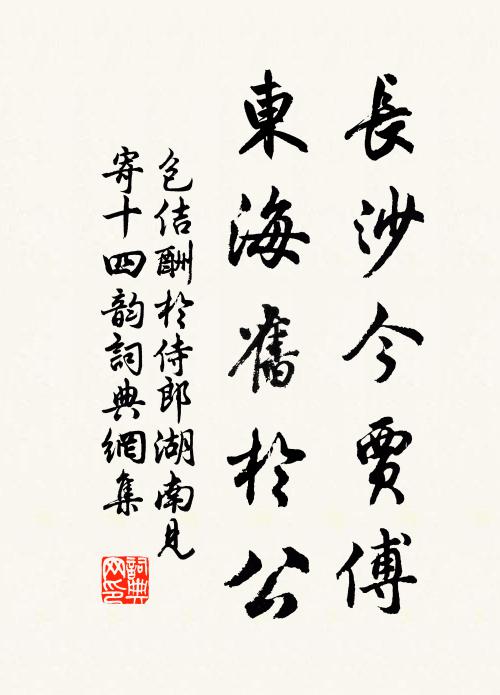 長沙今賈傅
東海舊於公
包佶酬於侍郎湖南見
寄十四韵詞典網集
詞典
网印